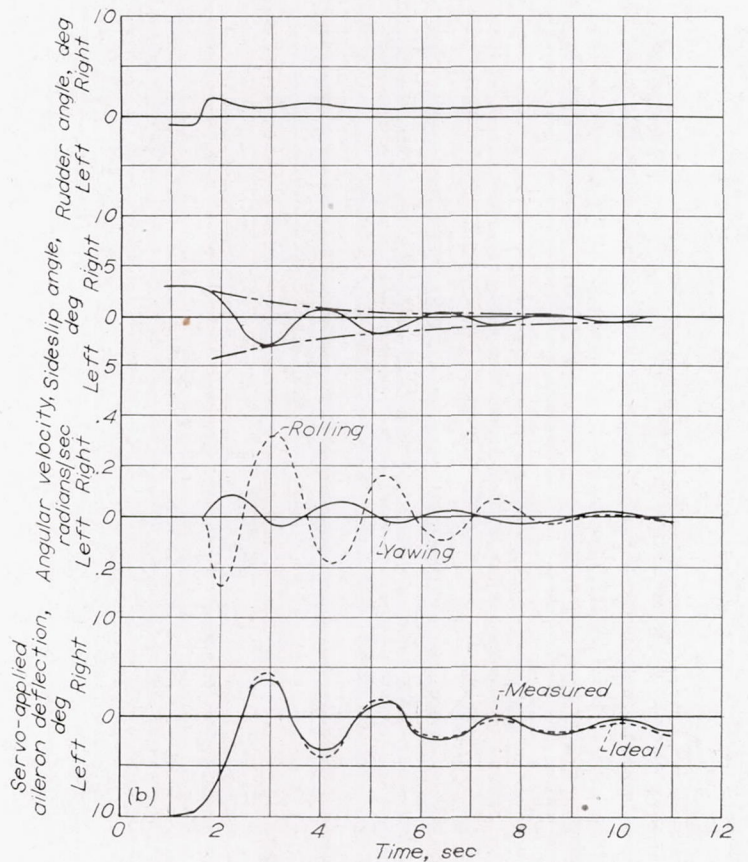 Rudder angle, deg
Left Right
10
0
10
Sideslip angle, deg
Left Right
5
0
5
Angular velocity, radians/sec
Left Right
.4
.2
0
.2
Rolling
Yawing
Servo-applied aileron deflection, deg
Left Right
10
0
10
Measured
Ideal
(b)
0 2 4 6 8 10 12
Time, sec